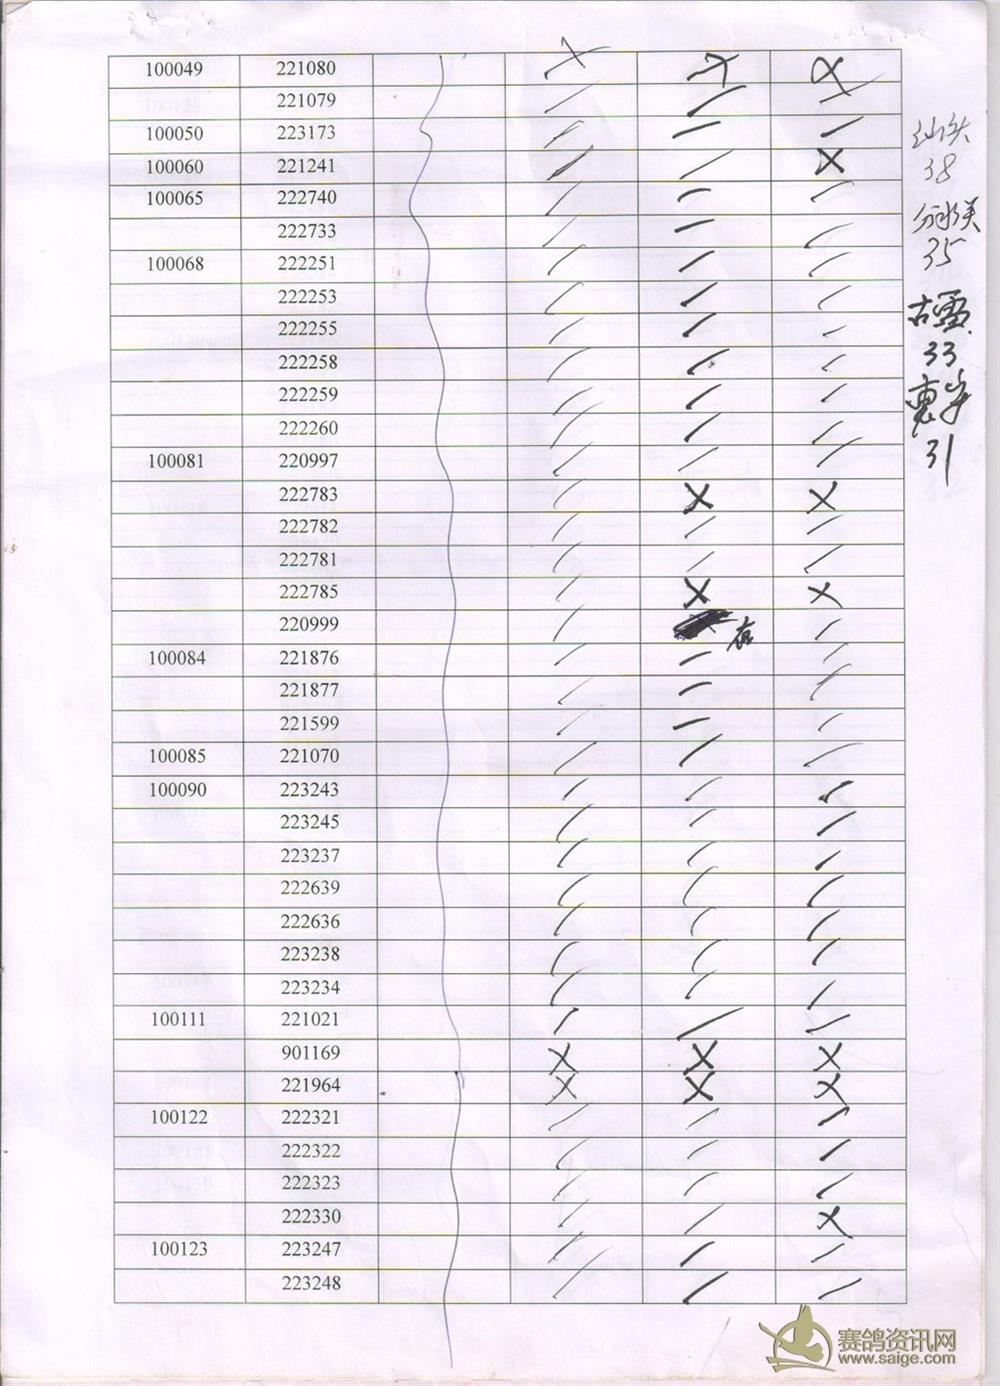 100049 221080
221079
100050 223173
100060 221241
100065 222740
222733
100068 222251
222253
222255
222258
222259
222260
100081 220997
222783
222782
222781
222785
220999 在
100084 221876
221877
221599
100085 221070
100090 223243
223245
223237
222639
222636
223238
223234
100111 221021
901169
221964
100122 222321
222322
222323
222330
100123 223247
223248
汕头
38
35
古雷
33
惠安
31
赛鸽资讯网
www.saige.com